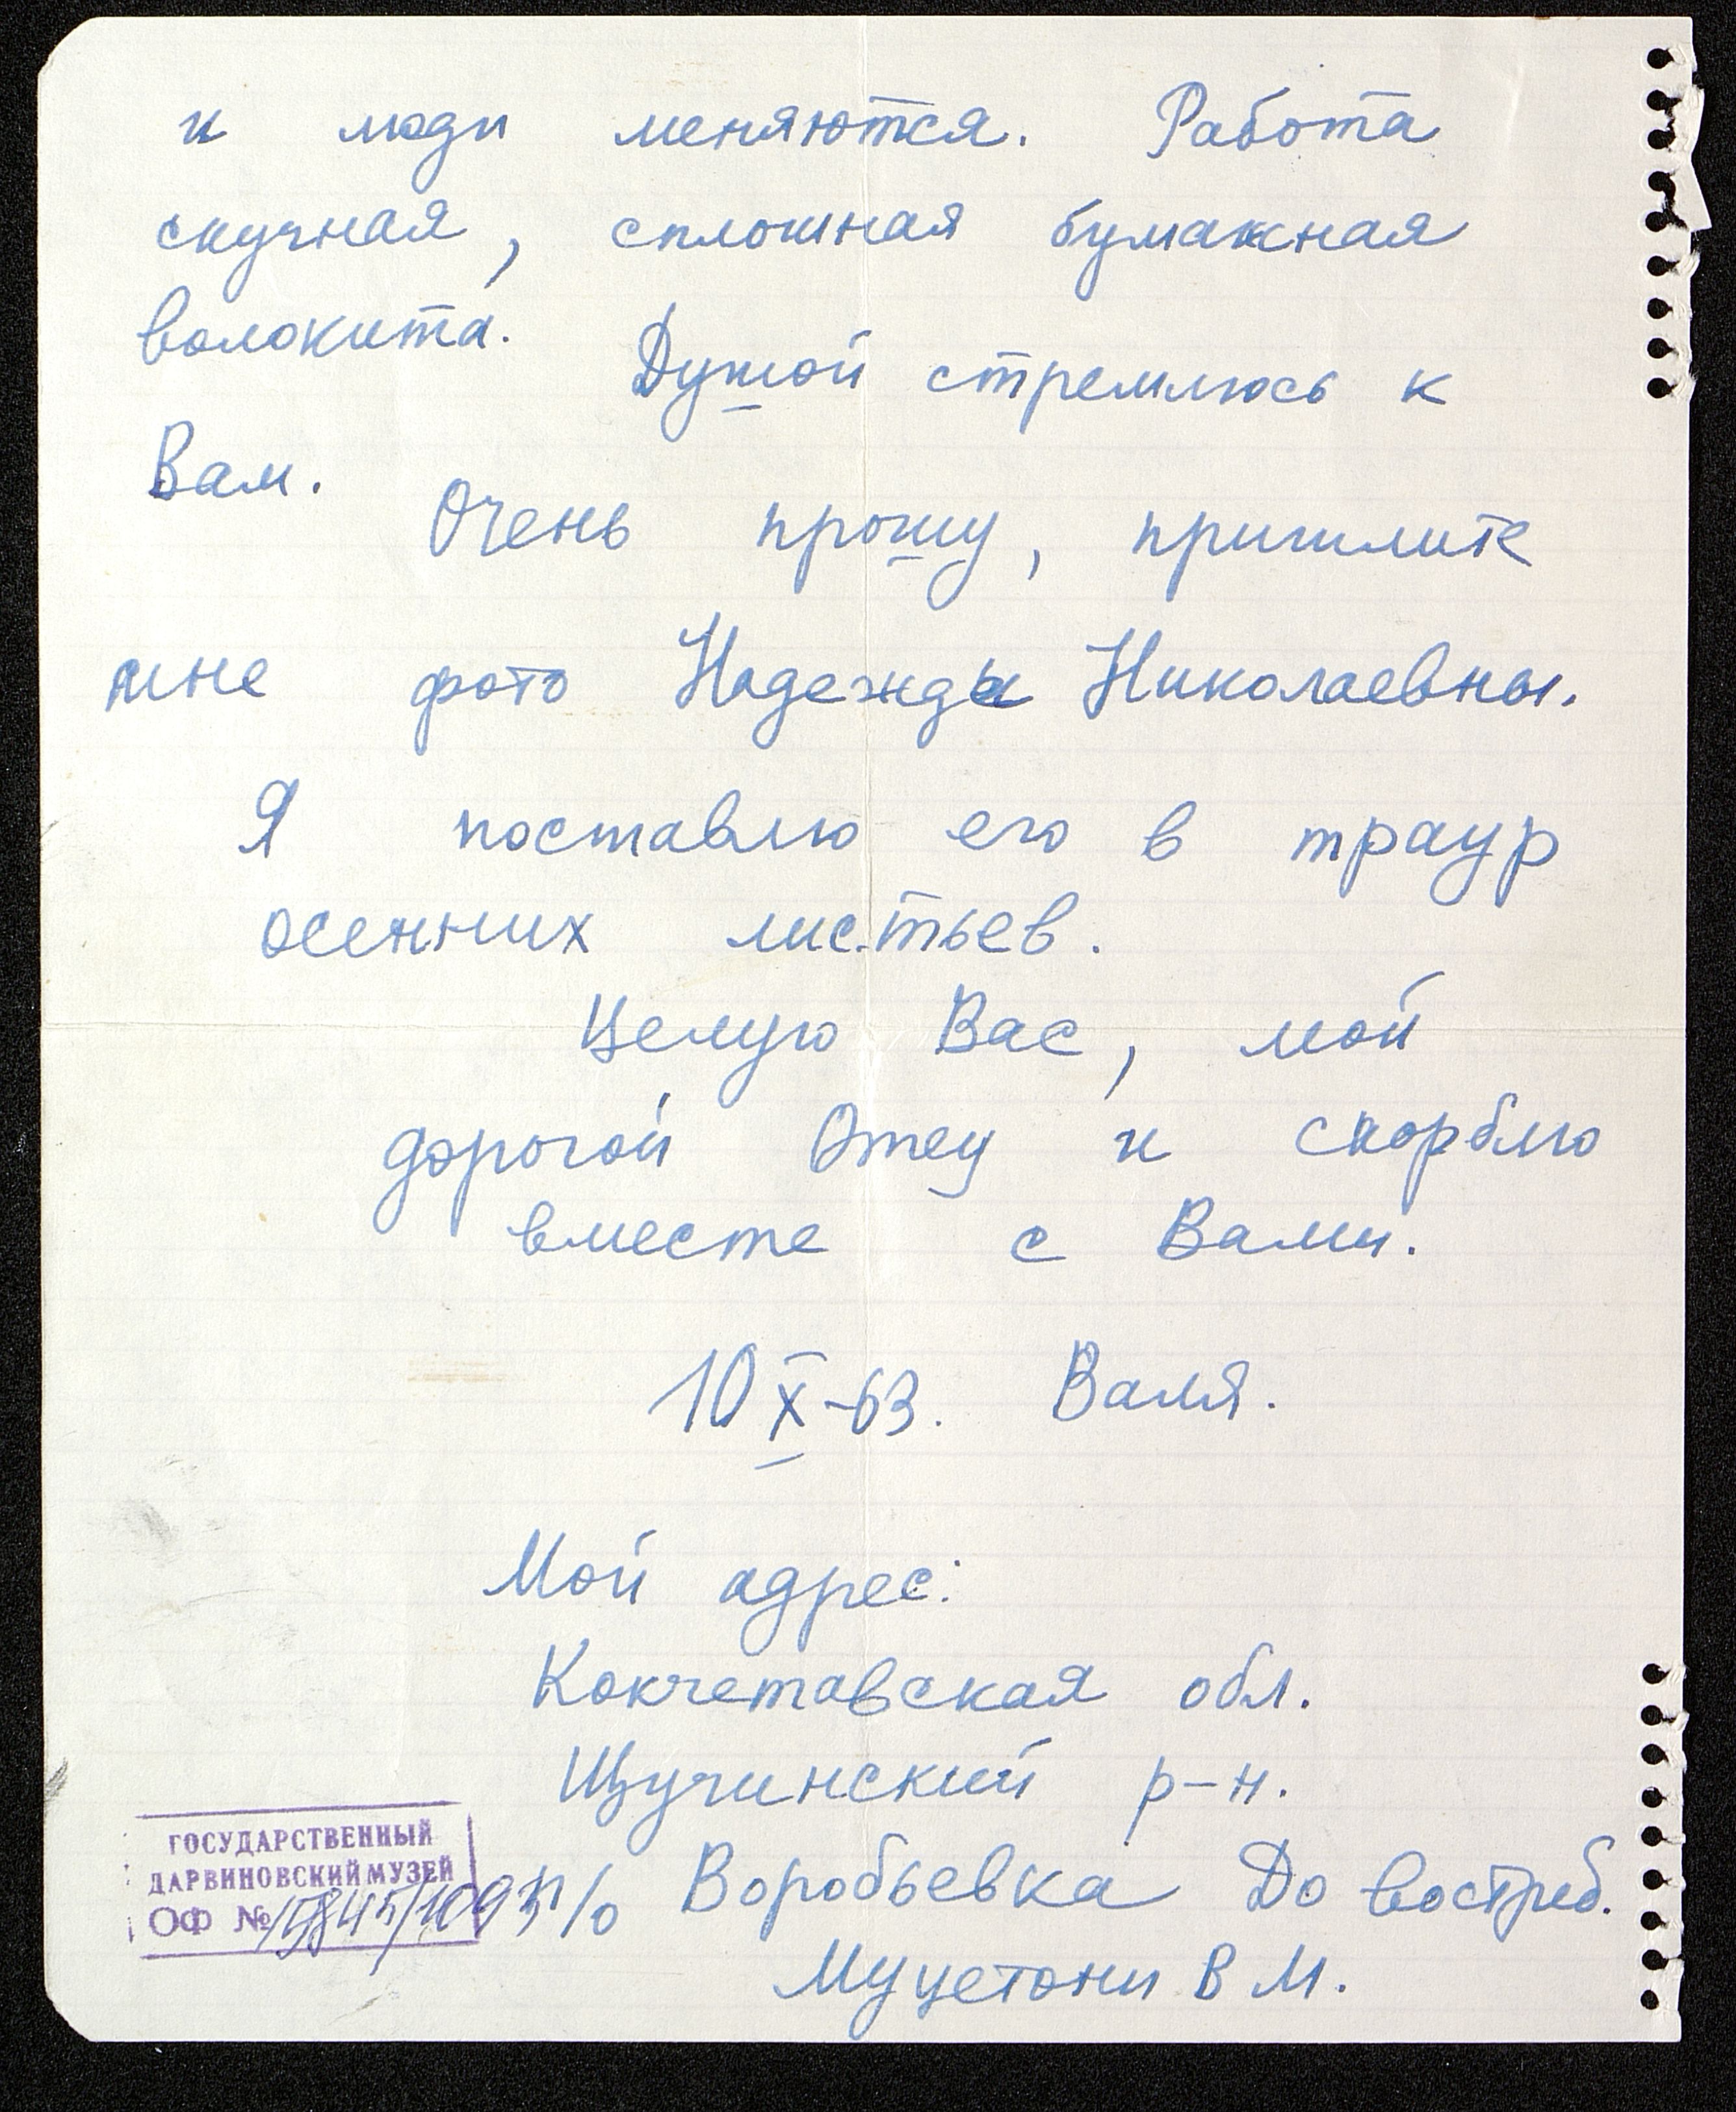 и люди меняются. Работа
скучная, сплошная бумажная
волокита. Душой стремлюсь к
Вам.
Очень прошу, пришлите
мне фото Надежды Николаевны.
Я поставлю его в траур
осенних листьев.
Целую Вас, мой
дорогой Отец и скорблю
вместе с Вами.
10 X-63. Валя.
Мой адрес:
Кокчетавская обл.
Щучинский р-н.
п/о Воробьевка До востреб.
Муцетони В М.
ГОСУДАРСТВЕННЫЙ
ДАРВИНОВСКИЙ МУЗЕЙ
ОФ №